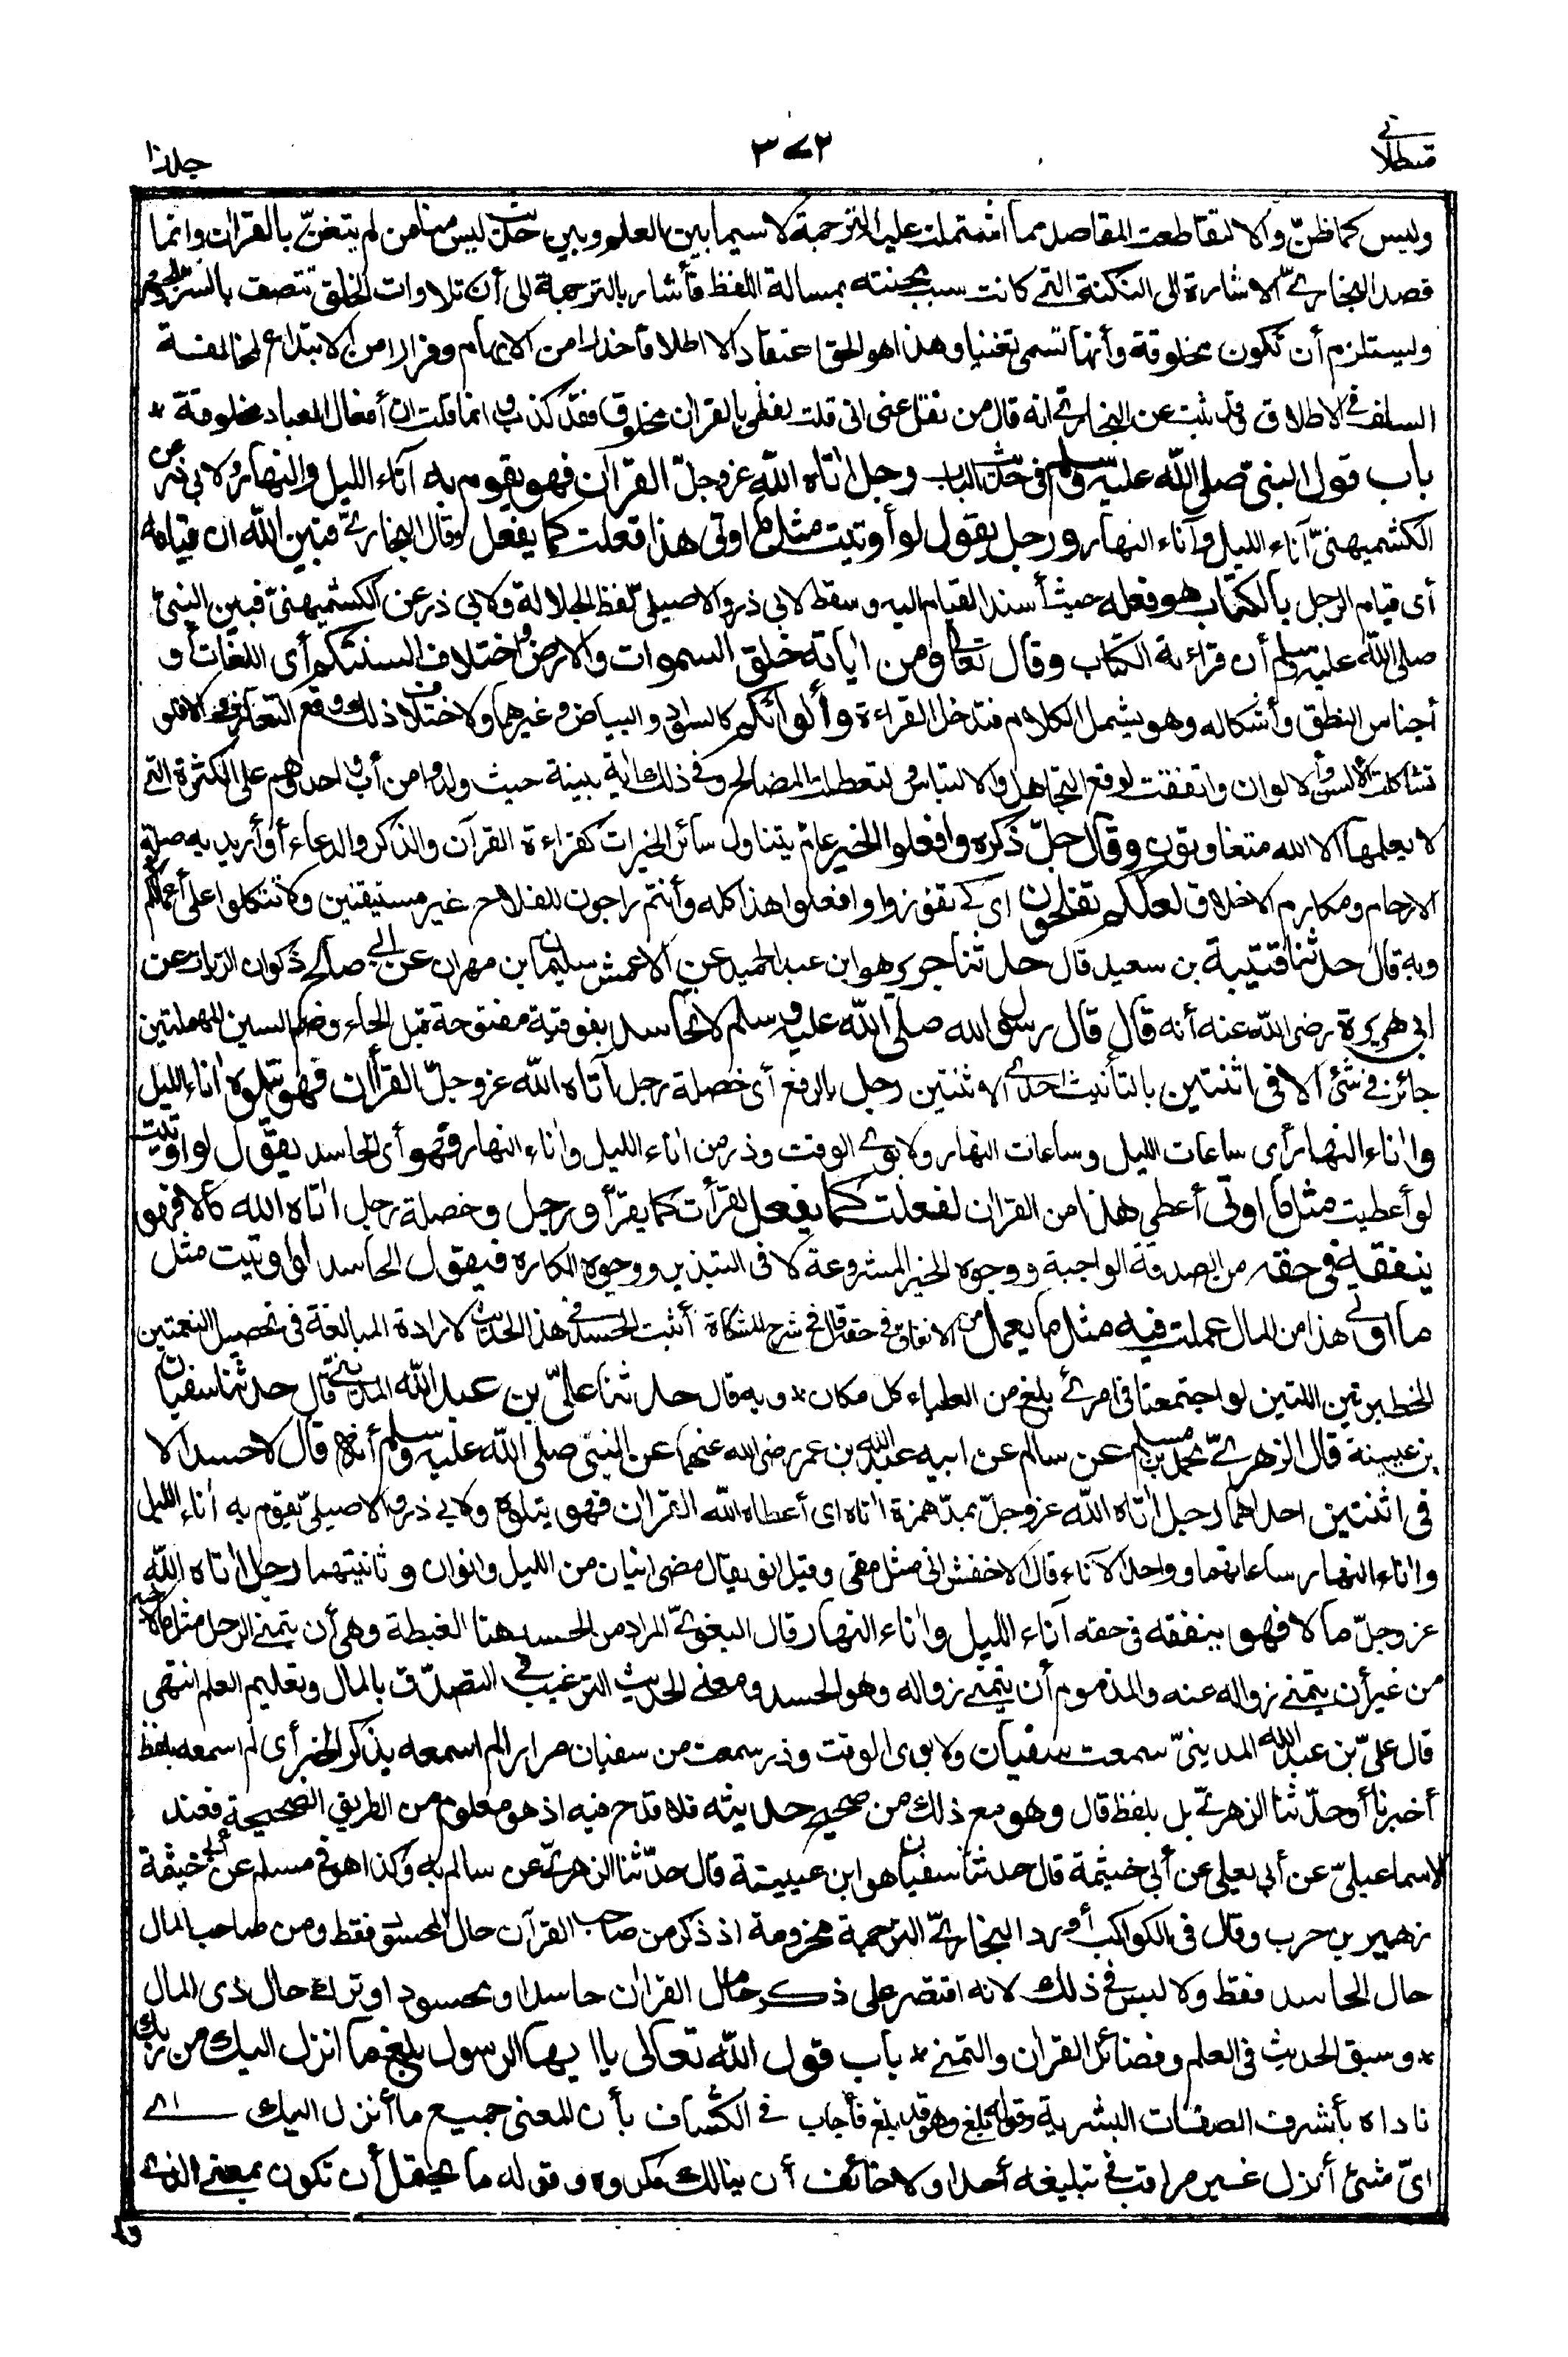 قسطلانى
٣٧٢
جلد١٠
وليس كما ظنّ والا لتقاطعت المقاصد مما اشتملت عليه الترجمة لا سيما بين العلم وبين حديث ليس منا من لم يتغنّ بالقرآن وانما
قصد البخارىّ الاشارة الى النكتة التى كانت سبب محنته بمسالة اللفظ فأشار بالترجمة الى أن تلاوات الخلق تتصف بالسرّ والجهر
ويستلزم أن تكون مخلوقة وأنها تسمى تغنيا وهذا هو الحق اعتقادا لا اطلاقا حذرا من الايهام وفرارا من الابتداع لمخالفة
السلف فى الاطلاق وقد ثبت عن البخارىّ انه قال من نقل عنى انى قلت لفظى بالقرآن مخلوق فقد كذب وانما قلت ان أفعال العباد مخلوقة *
باب قول النبىّ صلى الله عليه وسلم فى حديث الباب رجل اتاه الله عزوجلّ القرآن فهو يقوم به آناء الليل والنهار ولابى ذر عن
الكشميهنىّ آناء الليل وآناء النهار ورجل يقول لو أوتيت مثل ما اوتى هذا فعلت كما يفعل وقال البخارىّ فبين الله ان قيامه
أى قيام الرجل بالكتاب هو فعله حيث أسند القيام اليه وسقط لابى ذر والاصيلىّ لفظ الجلالة ولابى ذر عن الكشميهنىّ فبين النبىّ
صلى الله عليه وسلم أن قراءة الكتاب وقال تعالى ومن اياته خلق السموات والارض واختلاف السنتكم أى اللغات أو
أجناس النطق وأشكاله وهو يشمل الكلام فتدخل القراءة وألوانكم كالسواد والبياض وغيرهما ولاختلاف ذلك وقع التعارف والا فلو
تشاكلت الالسن والالوان واتفقت لوقع التجاهل والالتباس ولتعطلت المصالح وفى ذلك اية بينة حيث ولدوا من أب واحد وهم على الكثرة التى
لا يعلمها الا الله متفاوتون وقال جلّ ذكره وافعلوا الخير عام يتناول سائر الخيرات كقراءة القرآن والذكر والدعاء أو أريد به صلة
الارحام ومكارم الاخلاق لعلكم تفلحون اى كى تفوزوا وافعلوا هذا كله وأنتم راجون للفلاح غير مستيقنين ولا تتكلوا على أعمالكم
وبه قال حدثنا قتيبة بن سعيد قال حدثنا جرير هو ابن عبد الحميد عن الاعمش سليمان ابن مهران عن ابى صالح ذكوان الزيات عن
ابى هريرة رضى الله عنه أنه قال قال رسول الله صلى الله عليه وسلم لا تحاسد بفوقية مفتوحة قبل الحاء وضم السين المهملتين
جائز فى شئ الا فى اثنتين بالتأنيث احدى الاثنتين رجل بالرفع أى خصلة رجل آتاه الله عزوجلّ القرأن فهو يتلوه اناء الليل
واناء النهار أى ساعات الليل وساعات النهار ولابوى الوقت وذر من اناء الليل واناء النهار فهو أى الحاسد يقول لو اوتيت
لو أعطيت مثل ما اوتى أعطى هذا من القران لفعلت كما يفعل لقرأت كما يقرأ ورجل وخصلة رجل اتاه الله مالا فهو
ينفقه فى حقه من الصدقة الواجبة ووجوه الخير المشروعة لا فى التبذير ووجوه المكاره فيقول الحاسد لو اوتيت مثل
ما اوتى هذا من المال عملت فيه مثل ما يعمل من الانفاق فى حقه قال فى شرح المشكاة أثبت الحسد فى هذا الحديث لارادة المبالغة فى تحصيل النعمتين
الخطيرتين اللتين لو اجتمعتا فى امرئ بلغ من العلياء كل مكان * وبه قال حدثنا علىّ بن عبد الله المدينىّ قال حدثنا سفيان
بن عيينة قال الزهرىّ محمد بن مسلم عن سالم عن ابيه عبد الله بن عمر رضى الله عنهما عن النبىّ صلى الله عليه وسلم أنه قال لا حسد الا
فى اثنتين احداهما رجل اتاه الله عزوجلّ بمدّ همزة اتاه اى أعطاه الله القران فهو يتلوه ولابى ذر والاصيلىّ يقوم به أناء الليل
واناء النهار ساعاتهما وواحد الآناء قال الاخفش انى مثل معى وقيل انو يقال مضى انيان من الليل وانوان وثانيتهما رجل اتاه الله
عزوجلّ مالا فهو ينفقه فى حقه آناء الليل واناء النهار قال البغوىّ المراد من الحسد هنا الغبطة وهى أن يتمنى الرجل مثل ما لاخيه
من غير أن يتمنى زواله عنه والمذموم أن يتمنى زواله وهو الحسد ومعنى الحديث الترغيب فى التصدّق بالمال وتعليم العلم انتهى
قال علىّ بن عبد الله المدينىّ سمعت سفيان ولابوى الوقت وذر سمعت من سفيان مرارا لم اسمعه يذكر الخبر أى لم اسمعه بلفظ
أخبرنا أو حدّثنا الزهرىّ بل بلفظ قال وهو مع ذلك من صحيح حديثه فلا قدح فيه اذ هو معلوم من الطريق الصحيحة فعند
الاسماعيلىّ عن أبى يعلى عن أبى خيثمة قال حدثنا سفيان هو ابن عيينة قال حدّثنا الزهرىّ عن سالم به وكذا هو فى مسلم عن أبى خيثمة
زهير بن حرب وقال فى الكواكب أورد البخارىّ الترجمة مخرومة اذ ذكر من صاحب القرآن حال المحسود فقط ومن صاحب المال
حال الحاسد فقط ولا لبس فى ذلك لانه اقتصر على ذكر حامل القران حاسدا ومحسودا وترك حال ذى المال
* وسبق الحديث فى العلم وفضائل القران والتمنى * باب قول الله تعالى ياايها الرسول بلغ ما انزل اليك من ربك
ناداه بأشرف الصفات البشرية وقوله بلغ وهو قد بلغ فأجاب فى الكشاف بأن المعنى جميع ما أنزل اليك اى
اىّ شئ أنزل غير مراقب فى تبليغه أحدا ولا خائف أن ينالك مكروه وقوله ما يحتمل أن تكون بمعنى الذى